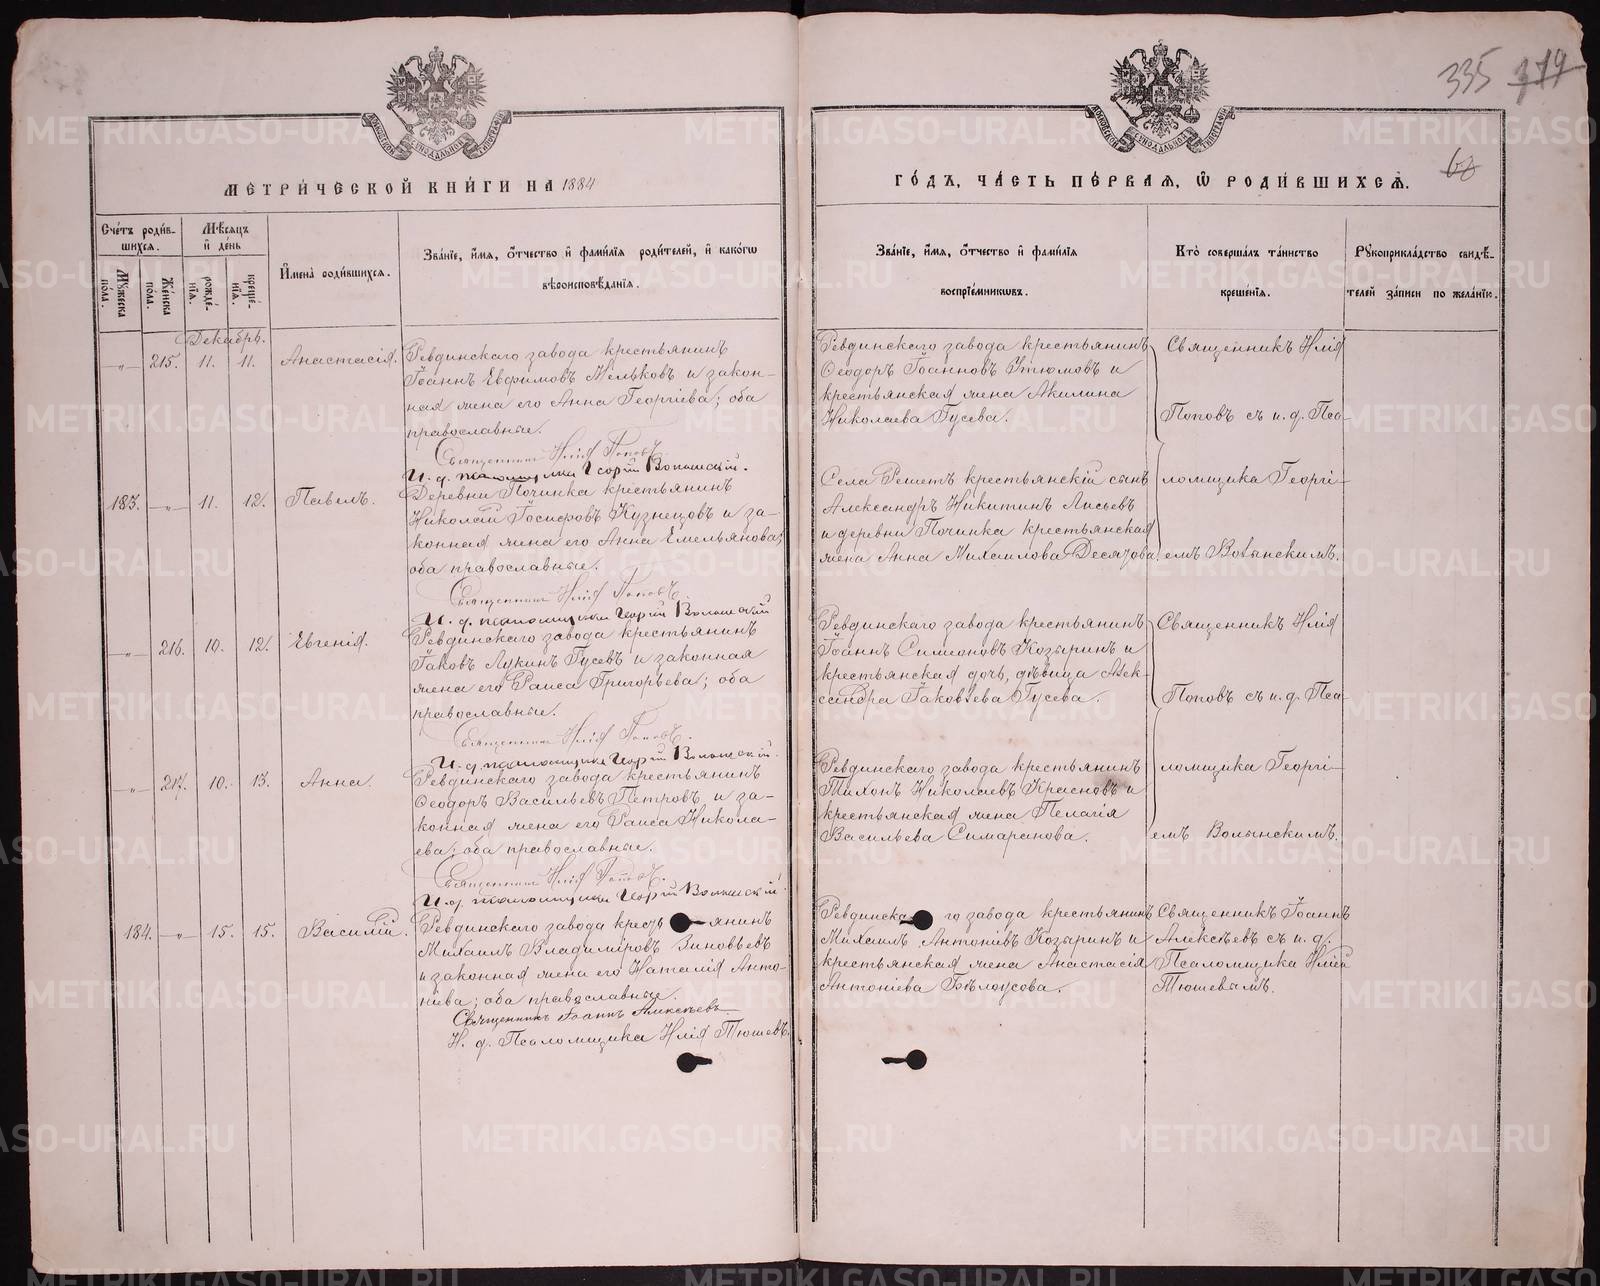 335 379
60
МЕТРИЧЕСКОЙ КНИГИ НА 1884
ГОДЪ, ЧАСТЬ ПЕРВАЯ, Ѿ РОДИВШИХСЯ.
Счетъ родившихся.
Мужеска пола.
Женска пола.
Мѣсяцъ и день
рожденія.
крещенія.
Имена родившихся.
Званіе, имя, отчество и фамилія родителей, и какогѡ
вѣроисповѣданія.
Званіе, имя, отчество и фамилія
воспріемникωвъ.
Кто совершалъ таинство
крещенія.
Рукоприкладство свидѣ-
телей записи по желанію.
Декабрь.
-„- 215. 11. 11. Анастасія.
Ревдинскаго завода крестьянинъ
Іоаннъ Евфимовъ Мельковъ и закон-
ная жена его Анна Георгіева; оба
православные.
Священникъ Илія Поповъ
И. д. псаломщика Георгій Волынскій.
Ревдинскаго завода крестьянинъ
Ѳеодоръ Іоанновъ Утюмовъ и
крестьянская жена Акилина
Николаева Гусева.
Священникъ Илія
Поповъ съ и. д. Пса-
ломщика Георгі-
емъ Волынскимъ.
183. -„- 11. 12. Павелъ.
Деревни Починка крестьянинъ
Николай Іосифовъ Кузнецовъ и за-
конная жена его Анна Емельянова;
оба православные.
Священникъ Илія Поповъ
И. д. псаломщика Георгій Волынскій
Села Решетъ крестьянскій сынъ
Александръ Никитинъ Лисьевъ
и деревни Починка крестьянская
жена Анна Михаилова Десятова.
-„- 216. 10. 12. Евгенія.
Ревдинскаго завода крестьянинъ
Іаковъ Лукинъ Гусевъ и законная
жена его Раиса Григорьева; оба
православные.
Священникъ Илія Поповъ.
И. д. псаломщика Георгій Волынскій.
Ревдинскаго завода крестьянинъ
Іоаннъ Симеоновъ Козыринъ и
крестьянская дочь, дѣвица Алек-
сандра Іаковлева Гусева.
Священникъ Илія
Поповъ съ и. д. Пса-
ломщика Георгі-
емъ Волынскимъ.
-„- 217. 10. 13. Анна.
Ревдинскаго завода крестьянинъ
Ѳеодоръ Васильевъ Петровъ и за-
конная жена его Раиса Никола-
ева; оба православные.
Священникъ Илія Поповъ.
И. д. псаломщика Георгій Волынскій
Ревдинскаго завода крестьянинъ
Тихонъ Николаевъ Красновъ и
крестьянская жена Пелагія
Васильева Симаранова.
184. -„- 15. 15. Василій.
Ревдинскаго завода крестьянинъ
Михаилъ Владиміровъ Зиновьевъ
и законная жена его Наталія Анто-
ніева; оба православные.
Священникъ Іоаннъ Алексѣевъ
И. д. Псаломщика Илія Тюшевъ.
Ревдинскаго завода крестьянинъ
Михаилъ Антоніевъ Козыринъ и
крестьянская жена Анастасія
Антоніева Бѣлоусова.
Священникъ Іоаннъ
Алексѣевъ съ и. д.
Псаломщика Иліей
Тюшевымъ.
METRIKI.GASO-URAL.RU